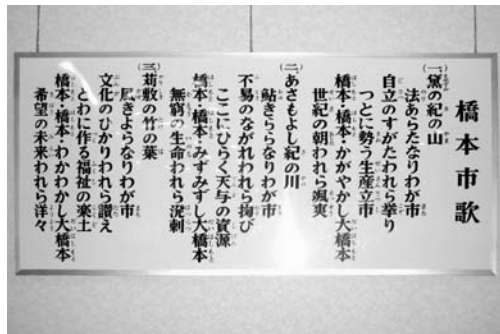 橋本市歌
(一)黛の紀の山
法あらたなりわが市
自立のすがたわれら挙り
つとに勢う生産立市
橋本・橋本・かがやかし大橋本
世紀の朝われら颯爽
(二)あさもよし紀の川
鮎きららなりわが市
不易のながれわれら掬び
ここにひらく天与の資源
橋本・橋本・みずみずし大橋本
無窮の生命われら溌剌
(三)苅敷の竹の葉
風きよらなりわが市
文化のひかりわれら讃え
とわに作る福祉の楽土
橋本・橋本・わかわかし大橋本
希望の未来われら洋々